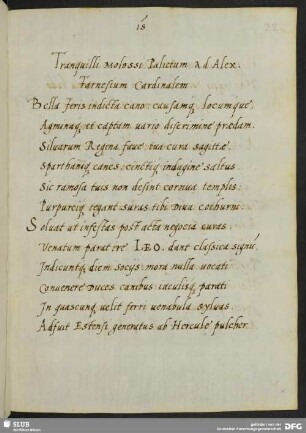 18
22
Tranquilli Molossi Palietum Ad Alex.
Farnesium Cardinalem
Bella feris indicta cano: causamq. locumque,
Agminaq. et captam uario discrimine prædam.
Siluarum Regens faue, tua cura sagittæ
Sparthaniq. canes: cinctiq. indagine saltus
Sic ramosa tuis non desint cornua templis:
Purpureiq. tegant suras tibi Diua cothurni.
Soluat ut infestas post acta negocia curas
Venatum paratere LEO. dant classica signũ
Indicuntq. diem socys: mora nulla uocati
Conuenere Duces canibus iaculisq. parati
In quascunq. uelit ferri uenabula syluas.
Adfuit Estensi generatus ab Hercule pulcher
SLUB
DFG